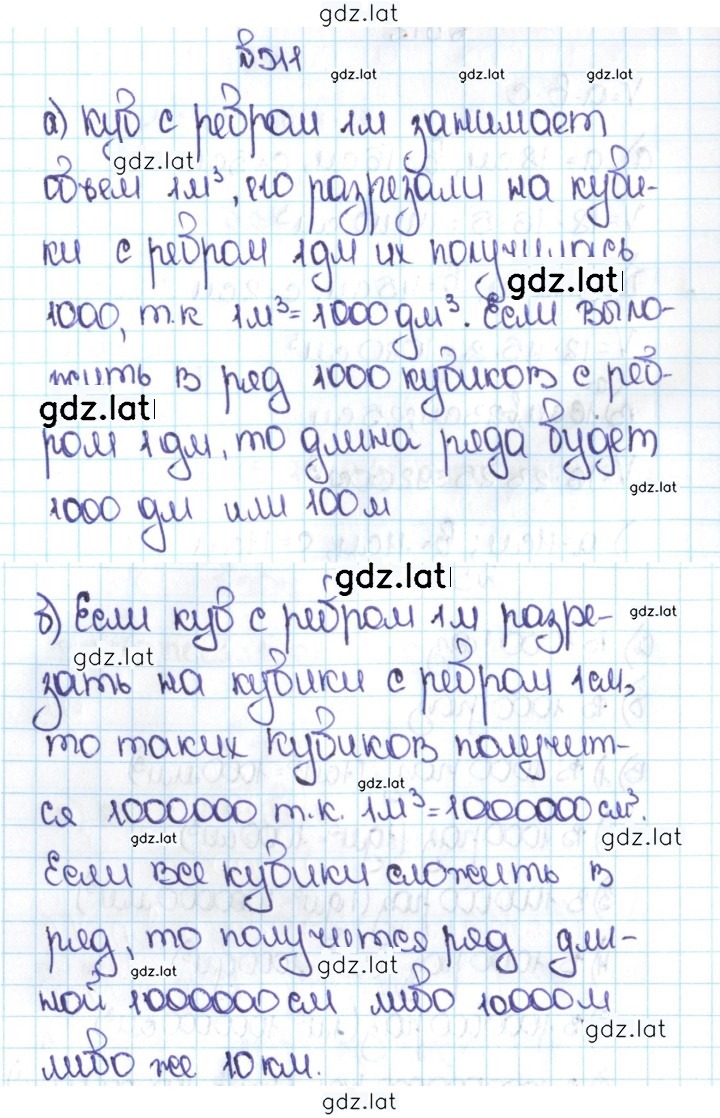 gdz.lat
№ 511
gdz.lat gdz.lat gdz.lat
а) куб с ребром 1м занимает
gdz.lat
объем 1м³, его разрезали на куби-
ки с ребром 1дм их получилось
gdz.lat
1000, т.к 1м³=1000дм³. Если выло-
жить в ряд 1000 кубиков с реб-
gdz.lat
ром 1дм, то длина ряда будет
gdz.lat
1000 дм или 100м
gdz.lat
б) Если куб с ребром 1м разре-
gdz.lat
gdz.lat
зать на кубики с ребром 1см,
то таких кубиков получит-
gdz.lat
ся 1000000 т.к. 1м³=1000000см³.
gdz.lat gdz.lat
Если все кубики сложить в
ряд, то получится ряд дли-
gdz.lat gdz.lat
ной 1000000см либо 10000м
gdz.lat
либо же 10км.
gdz.lat